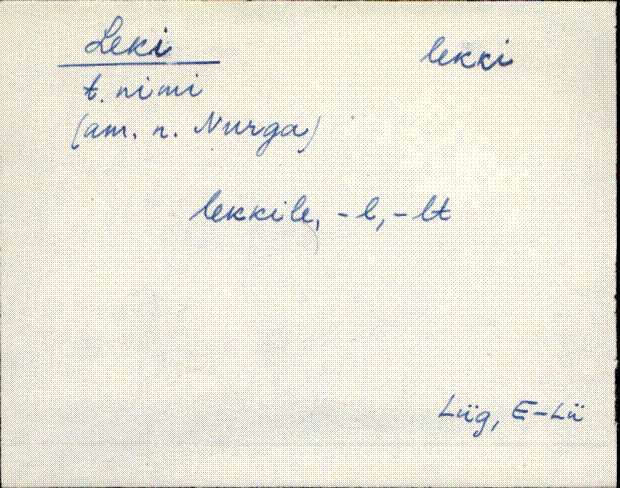 Leki lekki
t. nimi
(am. n. Nurga)
lekkile, -l, -lt
Lüg, E-Lü